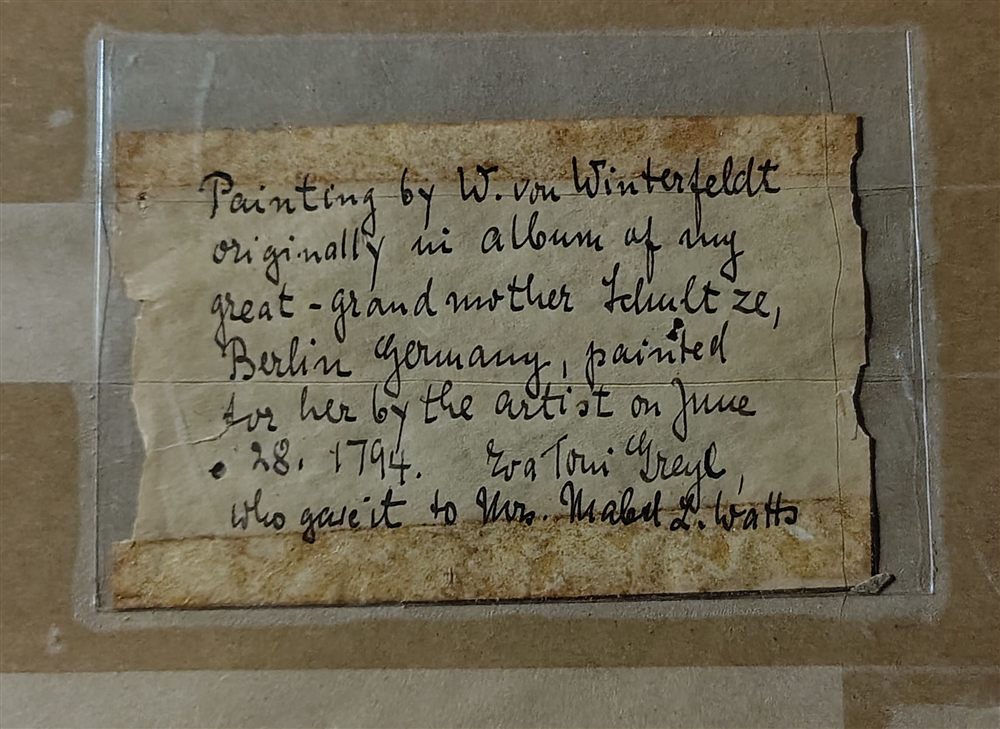 Painting by W. von Winterfeldt
originally in album of my
great-grandmother Schultze,
Berlin Germany, painted
for her by the artist on June
28. 1794. Eva Toni Greyl,
who gave it to Mrs. Mabel L. Watts